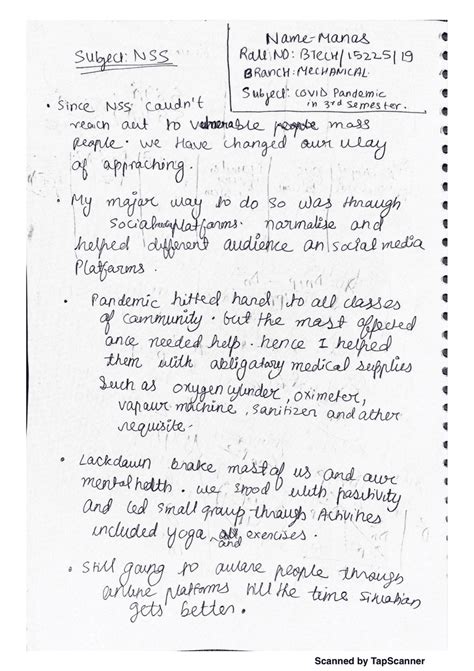 Subject: NSS
Name- Manas
Roll NO: BTECH/15225/19
BRANCH: MECHANICAL
Subject: COVID Pandemic
in 3rd semester.
• Since NSS coudn't
reach out to people mass
people. we have changed our way
of appraching.
• My major way to do so was through
Social media platforms. normalise and
helped different audience on social media
Platforms.
• Pandemic hitted hard to all classes
of community. but the most affected
once needed help. hence I helped
them with obligatory medical supplies
Such as oxygen cylunder, oximeter,
vapour machine, sanitizer and other
requisite.
• Lockdown brake most of us and our
mental helth. we stood with positivity
and led small group through Activities
included yoga and exercises.
• Still going to aware people through
online platforms till the time situation
gets better.
Scanned by TapScanner